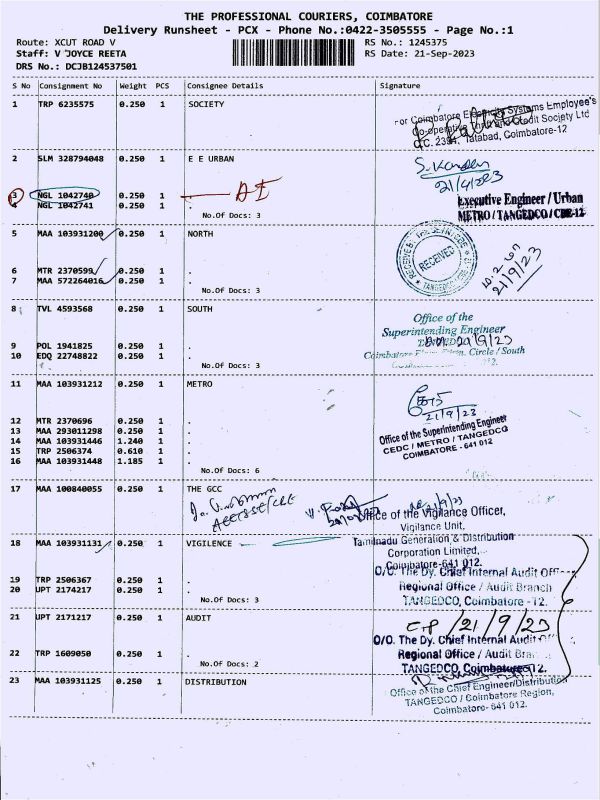 THE PROFESSIONAL COURIERS, COIMBATORE
Delivery Runsheet - PCX - Phone No.:0422-3505555 - Page No.:1
Route: XCUT ROAD V RS No.: 1245375
Staff: V JOYCE REETA RS Date: 21-Sep-2023
DRS No.: DCJB124537501
S No Consignment No Weight PCS Consignee Details Signature
1 TRP 6235575 0.250 1 SOCIETY
For Coimbatore Electricity Systems Employee's
Co-operative Thrift and Credit Society Ltd
C.C. 2394, Tatabad, Coimbatore-12
2 SLM 328794048 0.250 1 E E URBAN
21/9/23
3 NGL 1042740 0.250 1
4 NGL 1042741 0.250 1 .
No.Of Docs: 3
Executive Engineer / Urban
METRO / TANGEDCO / CBE-12
5 MAA 103931200 0.250 1 NORTH
RECEIVED
6 MTR 2370599 0.250 1 .
7 MAA 572264016 0.250 1 .
No.Of Docs: 3
21/9/23
8 TVL 4593568 0.250 1 SOUTH
Office of the
Superintending Engineer
9 POL 1941825 0.250 1 .
21/9/23
10 EDQ 22748822 0.250 1 .
Circle / South
No.Of Docs: 3
11 MAA 103931212 0.250 1 METRO
21/9/23
12 MTR 2370696 0.250 1 .
13 MAA 293011298 0.250 1 .
14 MAA 103931446 1.240 1 .
15 TRP 2506374 0.610 1 .
16 MAA 103931448 1.185 1 .
No.Of Docs: 6
Office of the Superintending Engineer
CEDC / METRO / TANGEDCO
COIMBATORE - 641 012
17 MAA 100840055 0.250 1 THE GCC
21/9/23
Office of the Vigilance Officer,
Vigilance Unit,
18 MAA 103931131 0.250 1 VIGILENCE
Tamilnadu Generation & Distribution
Corporation Limited,
Coimbatore-641 012.
19 TRP 2506367 0.250 1 .
20 UPT 2174217 0.250 1 .
No.Of Docs: 3
O/O. The Dy. Chief Internal Audit
Regional Office / Audit Branch
TANGEDCO, Coimbatore -12.
21 UPT 2171217 0.250 1 AUDIT
21/9/23
22 TRP 1609050 0.250 1 .
No.Of Docs: 2
O/O. The Dy. Chief Internal Audit
Regional Office / Audit
TANGEDCO, Coimbatore-12.
23 MAA 103931125 0.250 1 DISTRIBUTION
Office of the Chief Engineer/Distribution
TANGEDCO / Coimbatore Region,
Coimbatore- 641 012.